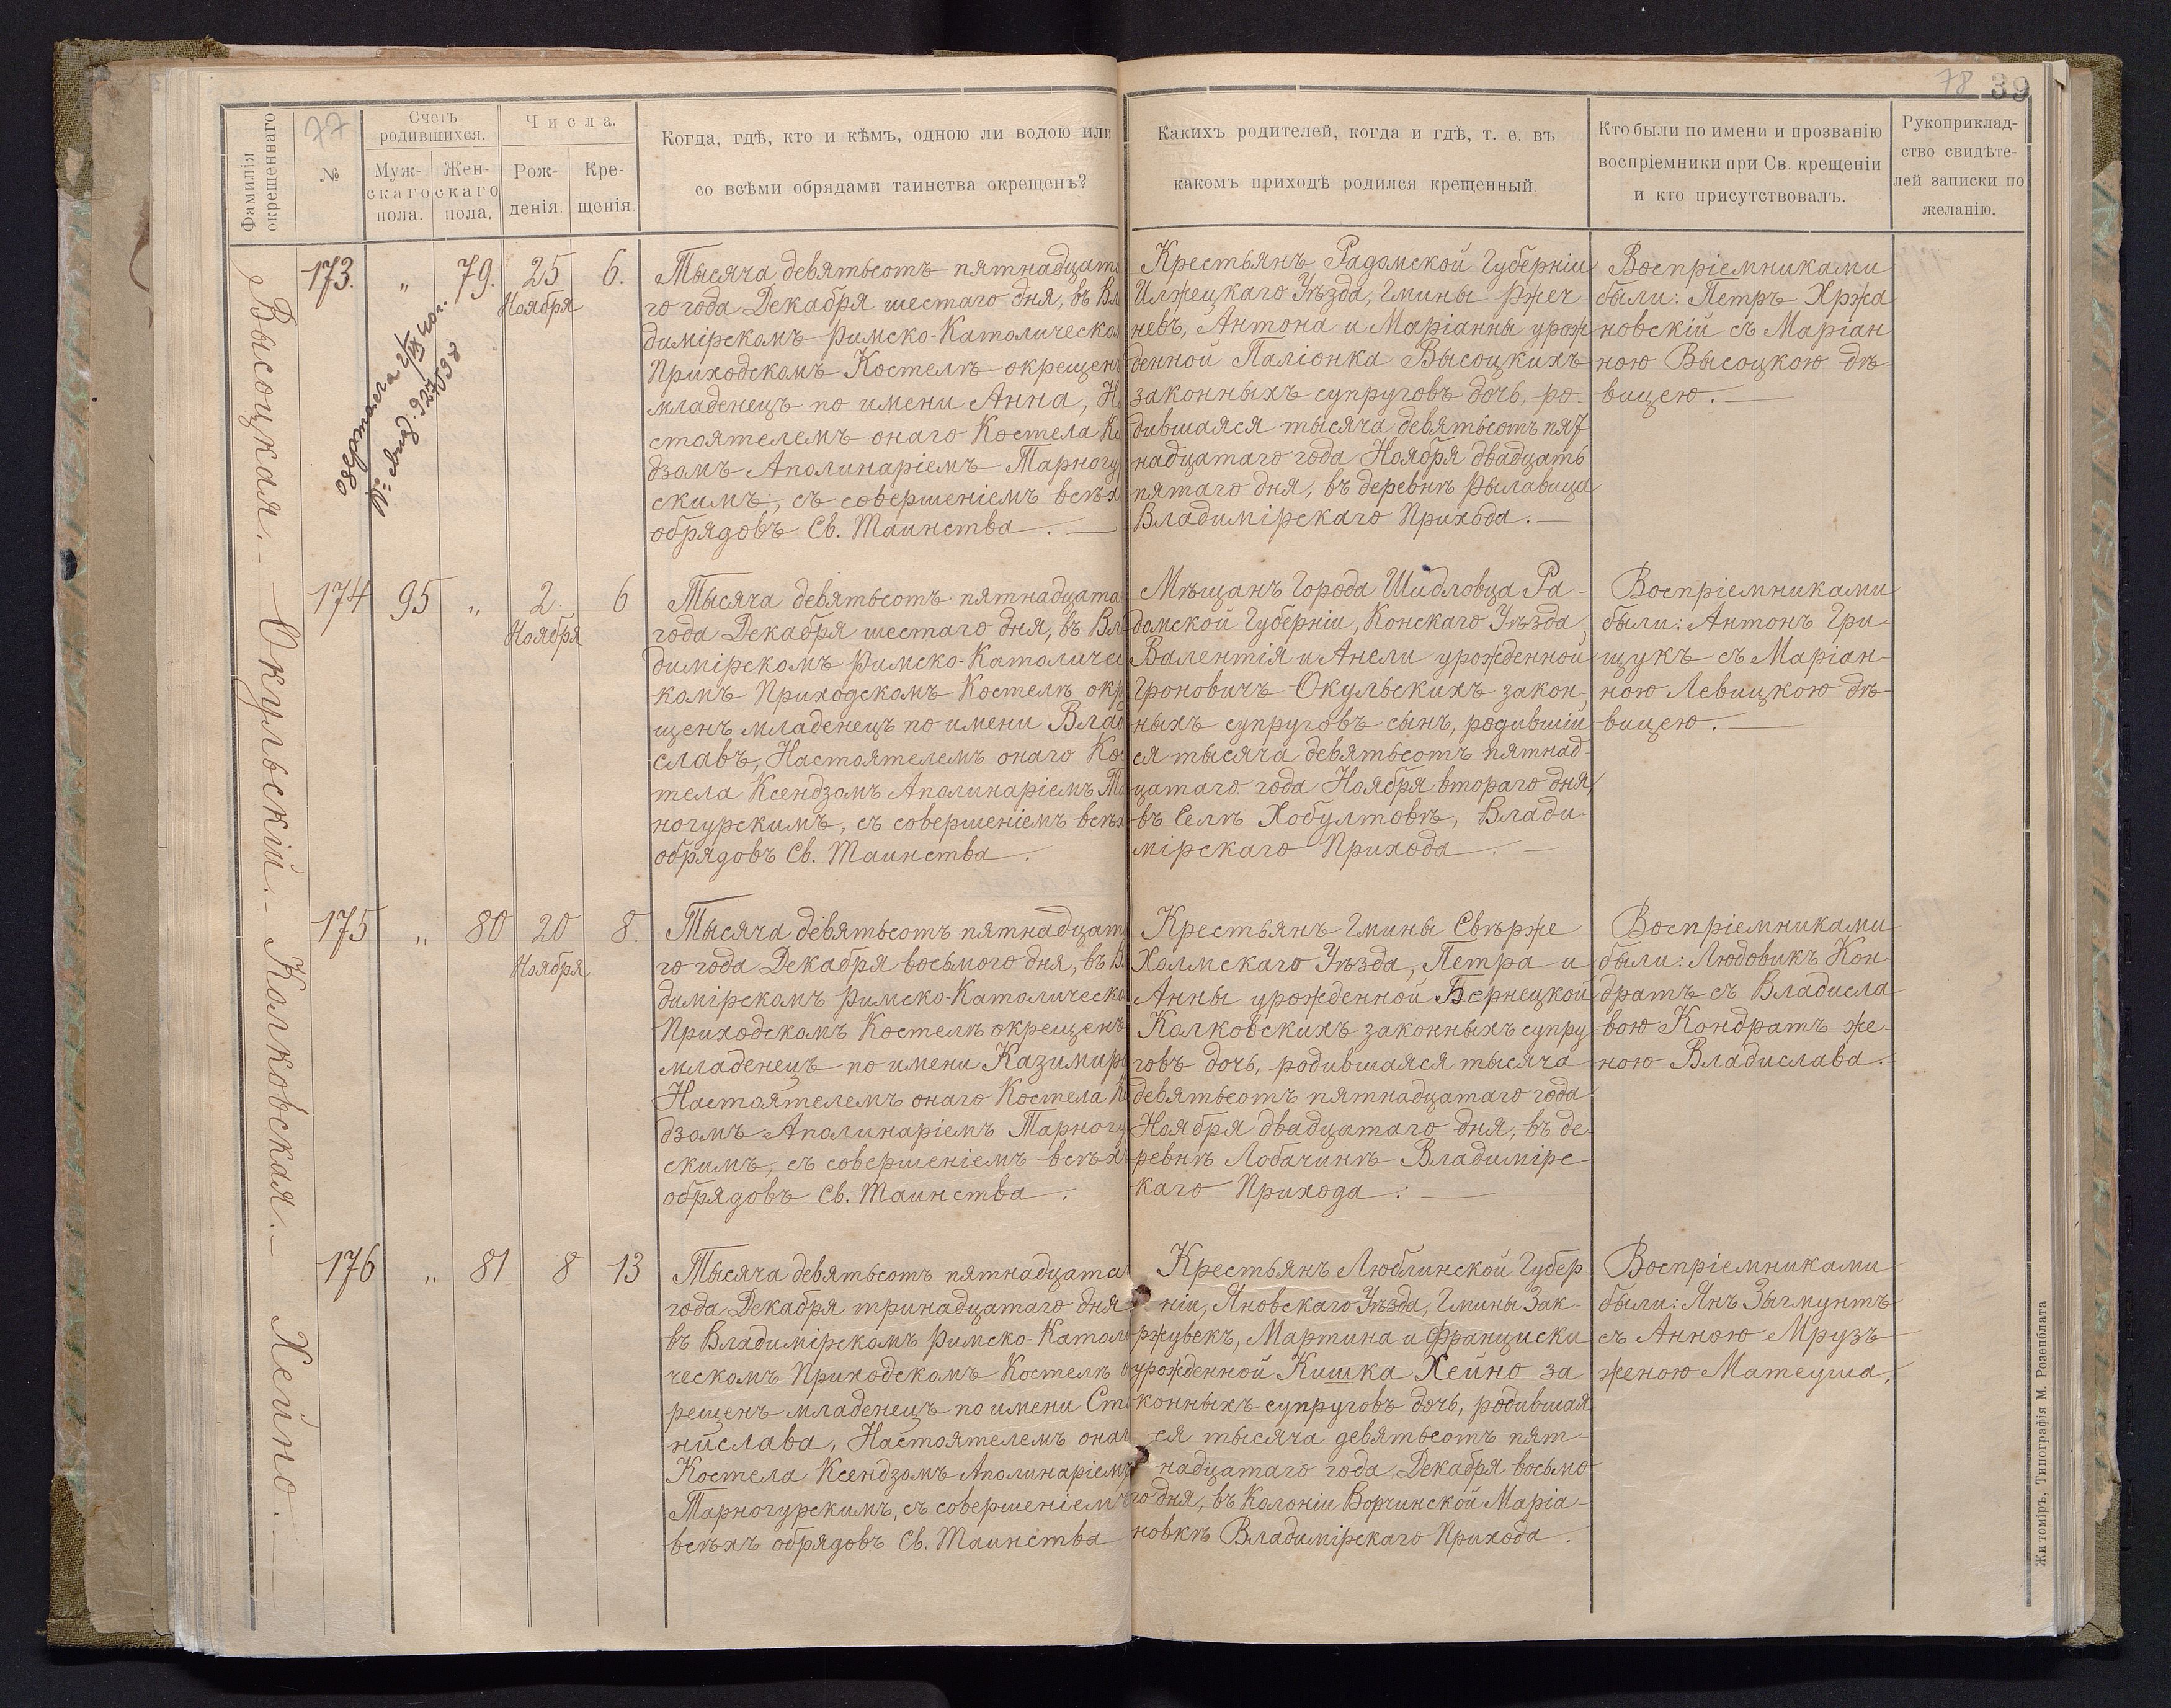 77
78 39
Фамилія
окрещеннаго
№
Счетъ
родившихся.
Муж-
скаго
пола.
Жен-
скаго
пола.
Числа.
Рож-
денія.
Кре-
щенія.
Когда, гдѣ, кто и кѣмъ, одною ли водою или
со всѣми обрядами таинства окрещенъ?
Какихъ родителей, когда и гдѣ, т. е. въ
какомъ приходѣ родился крещенный.
Кто были по имени и прозванію
воспріемники при Св. крещеніи
и кто присутствовалъ.
Рукоприклад-
ство свидѣте-
лей записки по
желанію.
Высоцкая.
173. „ 79. 25 6.
Ноября
Тысяча девятьсотъ пятнадцат
го года Декабря шестаго дня, въ Вл
димірскомъ Римско-Католическо
Приходскомъ Костелѣ окрещен
младенецъ по имени Анна, Н
стоятелемъ онаго Костела К
дзомъ Аполинаріемъ Тарногу
скимъ, съ совершеніемъ всѣх
обрядовъ Св. Таинства.
Крестьянъ Радомской Губерніи
Илжецкаго Уѣзда, Гмины Ржеч-
невъ, Антона и Маріанны урож
денной Паліонка Высоцкихъ
законныхъ супруговъ дочь, ро-
дившаяся тысяча девятьсотъ пят
надцатаго года Ноября двадцать
пятаго дня, въ деревнѣ Рылавица
Владимірскаго Прихода.
Воспріемниками
были: Петръ Хржа
новскій съ Маріан
ною Высоцкою дѣ-
вицею.
Окульскій.
174 95 „ 2 6
Ноября
Тысяча девятьсотъ пятнадцата
года Декабря шестаго дня, въ Вл
димірскомъ Римско-Католичес
комъ Приходскомъ Костелѣ окр
щенъ младенецъ по имени Влад
славъ, Настоятелемъ онаго Кос
тела Ксендзомъ Аполинаріемъ Та
ногурскимъ, съ совершеніемъ всѣх
обрядовъ Св. Таинства.
Мѣщанъ Города Шидловца Ра-
домской Губерніи, Конскаго Уѣзда,
Валентія и Анели урожденной
Гроновичъ Окульскихъ закон-
ныхъ супруговъ сынъ, родившій
ся тысяча девятьсотъ пятнад-
цатаго года Ноября втораго дня,
въ Селѣ Хобултовѣ, Влади-
мірскаго Прихода.
Воспріемниками
были: Антонъ Гри-
щукъ съ Маріан-
ною Левицкою дѣ-
вицею.
Колковская.
175 „ 80 20 8.
Ноября
Тысяча девятьсотъ пятнадцат
го года Декабря восьмого дня, въ В
димірскомъ Римско-Католическо
Приходскомъ Костелѣ окрещенъ
младенецъ по имени Казимир
Настоятелемъ онаго Костела К
дзомъ Аполинаріемъ Тарногу
скимъ, съ совершеніемъ всѣх
обрядовъ Св. Таинства.
Крестьянъ Гмины Свѣрже
Холмскаго Уѣзда, Петра и
Анны урожденной Бернецкой
Колковскихъ законныхъ супру
говъ дочь, родившаяся тысяча
девятьсотъ пятнадцатаго года
Ноября двадцатаго дня, въ де-
ревнѣ Лобачинѣ Владимірс
каго Прихода.
Воспріемниками
были: Людовикъ Кон-
дратъ съ Владисла
вою Кондратъ же-
ною Владислава.
Хейно.
176 „ 81 8 13
Тысяча девятьсотъ пятнадцата
года Декабря тринадцатаго дня
въ Владимірскомъ Римско-Катол
ческомъ Приходскомъ Костелѣ о
рещенъ младенецъ по имени Ст
нислава, Настоятелемъ онаг
Костела Ксендзомъ Аполинаріемъ
Тарногурскимъ, съ совершеніемъ
всѣхъ обрядовъ Св. Таинства
Крестьянъ Люблинской Губер-
ніи, Яновскаго Уѣзда, Гмины Зак-
ржувекъ, Мартина и Франциски
урожденной Кишка Хейно за
конныхъ супруговъ дочь, родившая
ся тысяча девятьсотъ пят-
надцатаго года Декабря восьмо
го дня, въ Колоніи Ворчинской Маріа-
новкѣ Владимірскаго Прихода.
Воспріемниками
были: Янъ Зыгмунтъ
съ Анною Мрузъ
женою Матеуша.
Житоміръ, Типографія М. Розенблата